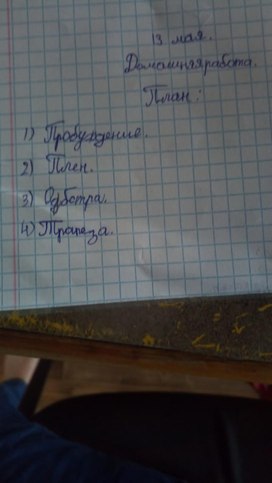 13 мая.
Домашняя работа.
План:
1) Пробуждение.
2) Плен.
3)
4) Трапеза.